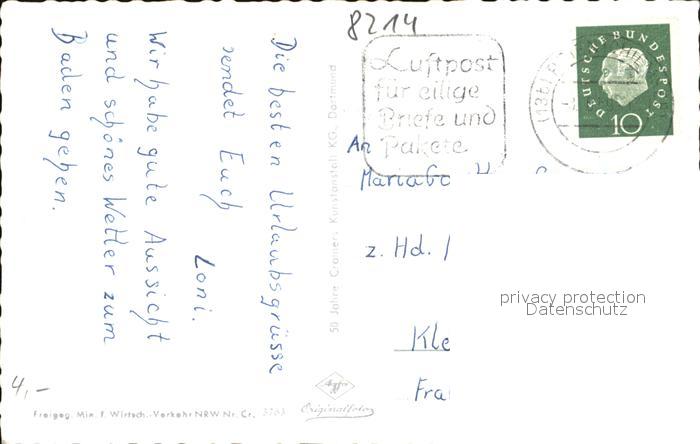 8214
Luftpost
für eilige
Briefe und
Pakete
DEUTSCHE BUNDESPOST
10
Die besten Urlaubsgrüsse
sendet Euch
Loni.
Wir habe gute Aussicht
und schönes Wetter zum
Baden gehen.
An
z. Hd.
Kle
Fra
privacy protection
Datenschutz
50 Jahre Cramers Kunstanstalt KG, Dortmund
4,-
Freigeg. Min. f. Wirtsch.-Verkehr NRW Nr. Cr. 3763
Agfa
Originalfoto